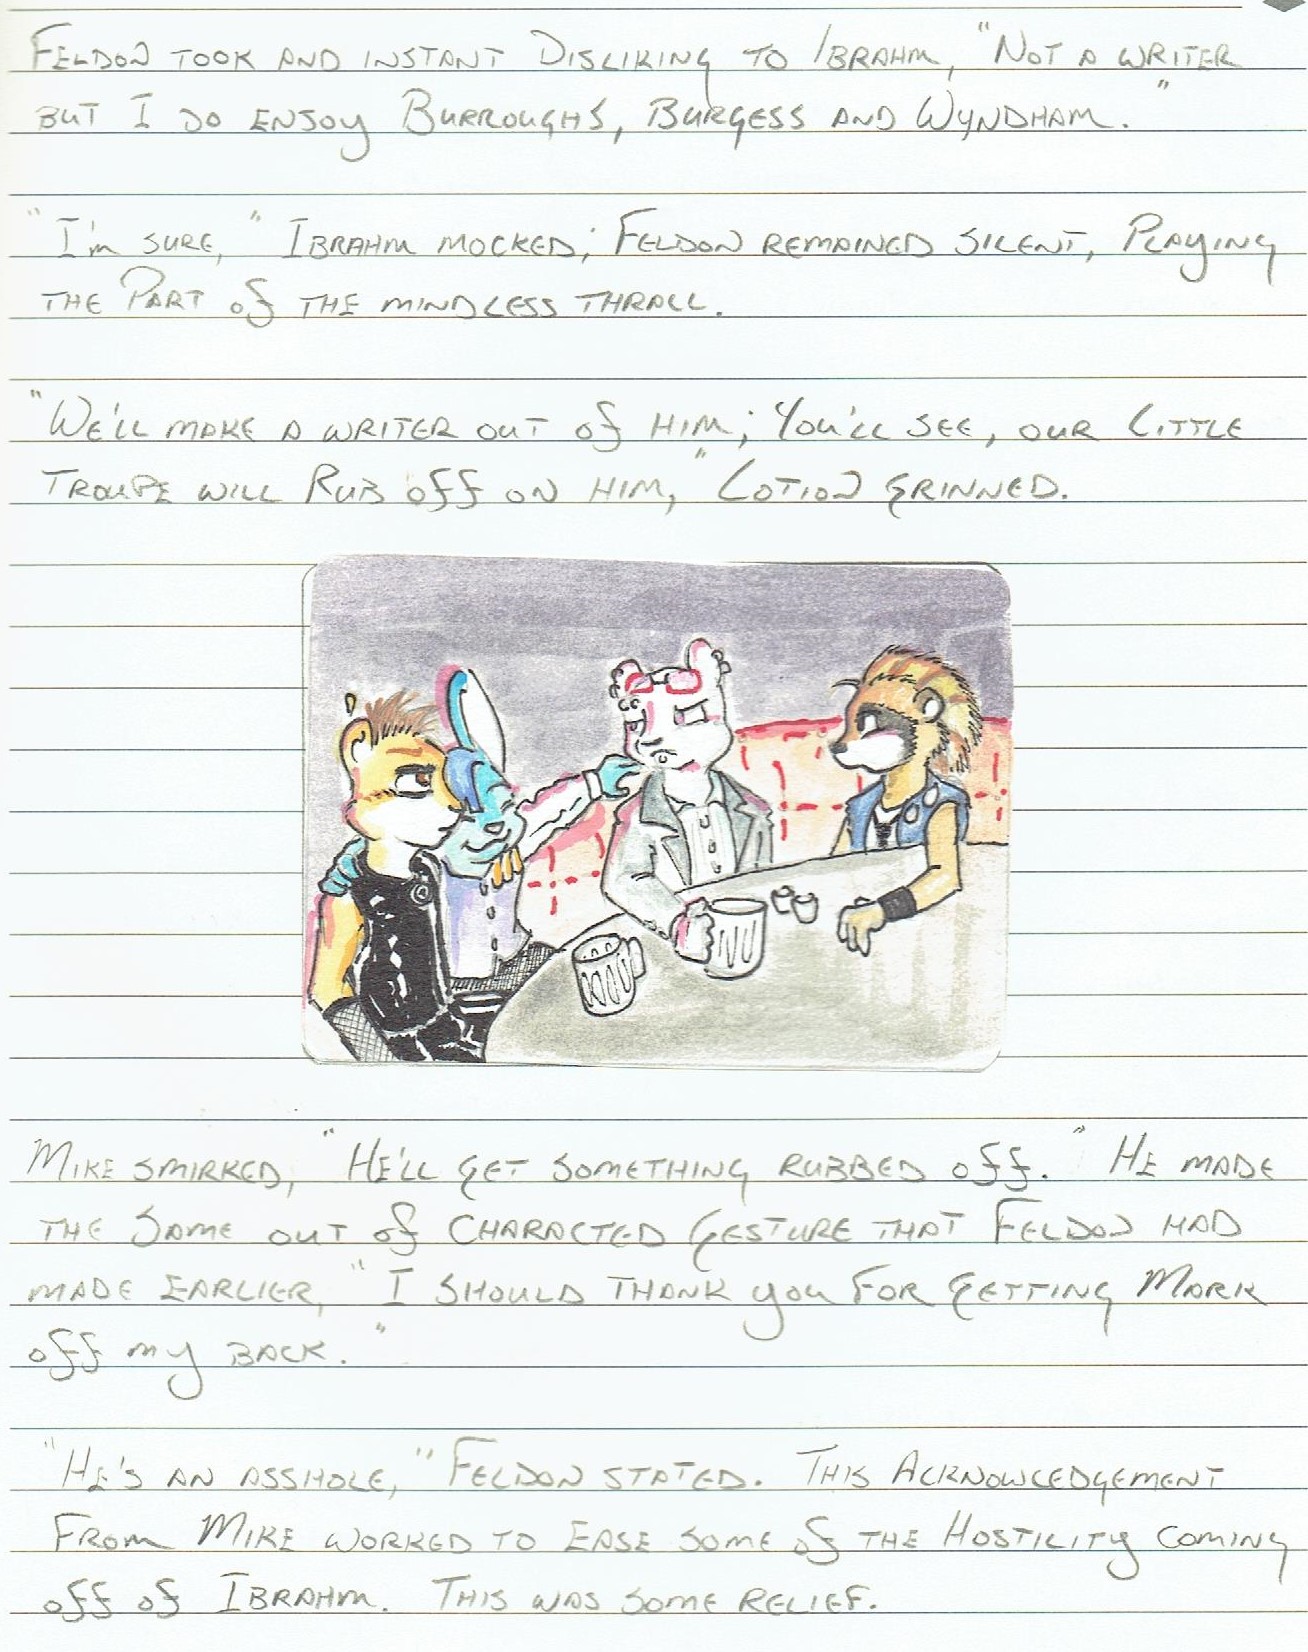 Feldon took and instant Disliking to Ibrahm, "Not a writer
but I do enjoy Burroughs, Burgess and Wyndham."
"I'm sure," Ibrahm mocked; Feldon remained silent, Playing
the Part of the mindless thrall.
"We'll make a writer out of him; You'll see, our Little
Troupe will Rub off on him," Lotion grinned.
Mike smirked, "He'll get something rubbed off." He made
the same out of characted gesture that Feldon had
made earlier, "I should thank you for getting Mark
off my back."
"He's an asshole," Feldon stated. This Acknowledgement
From Mike worked to ease some of the Hostility coming
off of Ibrahm. This was some relief.